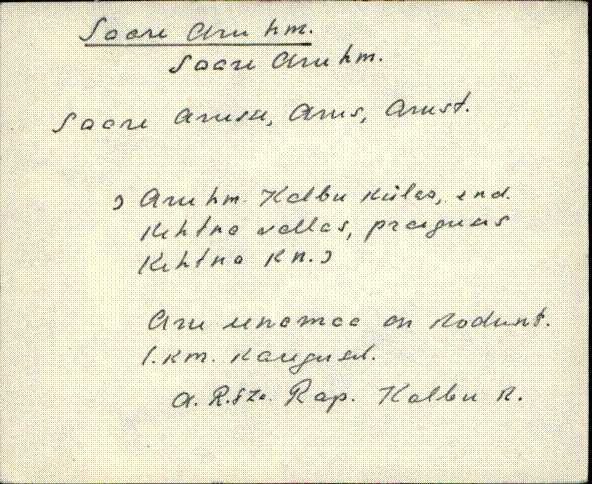 Saare Aru hm.
Saare Aru hm.
Saare Arusse, Arus, Arust.
) Aru hm. Kalbu külas, end.
Kehtna vallas, praeguses
Kehtna kn.)
Aru heinamaa on kodunt.
1. km. kaugusel.
Rap. Kalbu k.